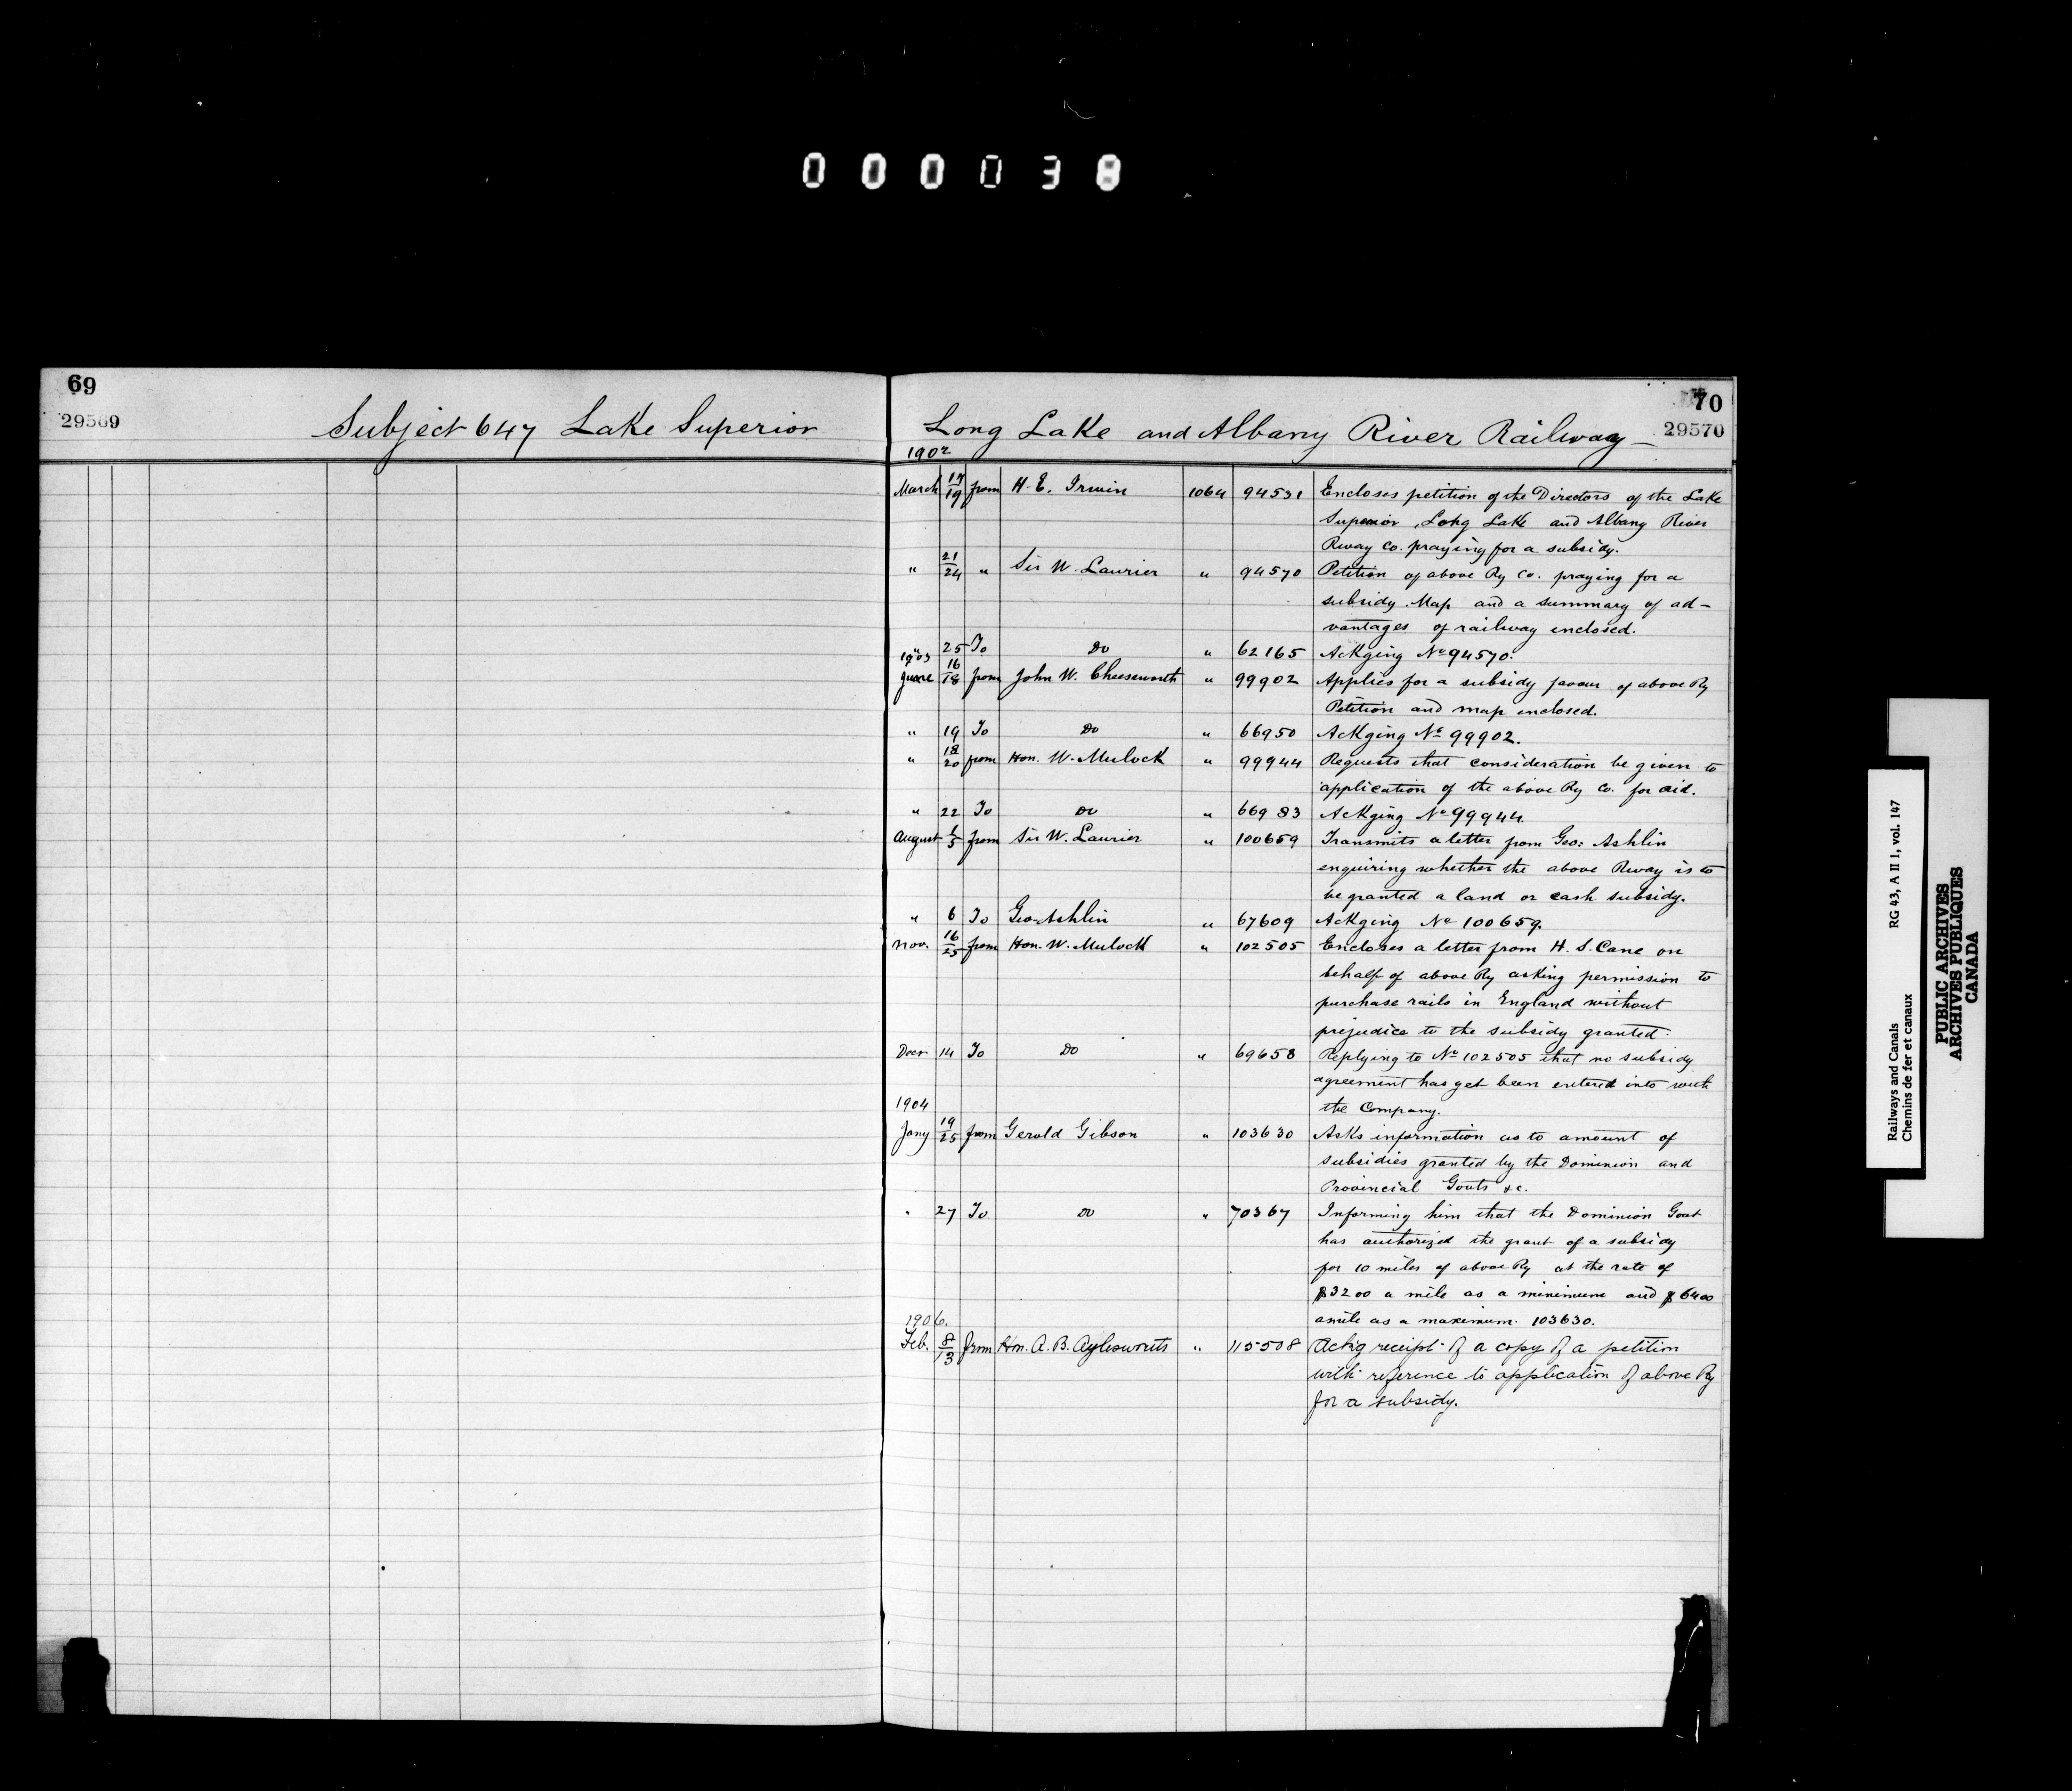 000038
69
29569
Subject 647 Lake Superior
70
29570
Long Lake and Albany River Railway
1902
March 17/19 from H. E. Irwin 1064 94531 Encloses petition of the Directors of the Lake
Superior, Long Lake and Albany River
Rway Co. praying for a subsidy.
" 21/24 " Sir W. Laurier " 94570 Petition of above Ry Co. praying for a
subsidy. Map and a summary of ad-
vantages of railway enclosed.
" 25 To Do " 62165 Ackging No 94570.
1903
June 16/18 from John W. Cheeseworth " 99902 Applies for a subsidy favour of above Ry
Petition and map enclosed.
" 19 To Do " 66950 Ackging No 99902.
" 18/20 from Hon. W. Mulock " 99944 Requests that consideration be given to
application of the above Ry Co. for aid.
" 22 To Do " 66983 Ackging No 99944
August 1/5 from Sir W. Laurier " 100659 Transmits a letter from Geo: Ashlin
enquiring whether the above Rway is to
be granted a land or cash subsidy.
" 6 To Geo. Ashlin " 67609 Ackging No 100659.
Nov. 16/25 from Hon. W. Mulock " 102505 Encloses a letter from H. S. Cane on
behalf of above Ry asking permission to
purchase rails in England without
prejudice to the subsidy granted.
Decr 14 To Do " 69658 Replying to No 102505 that no subsidy
agreement has yet been entered into with
the Company.
1904
Jany 19/25 from Gerald Gibson " 103630 Asks information as to amount of
subsidies granted by the Dominion and
Provincial Govts &c.
" 27 To Do " 70367 Informing him that the Dominion Govt
has authorized the grant of a subsidy
for 10 miles of above Ry at the rate of
$3200 a mile as a minimum and $6400
a mile as a maximum. 103630.
1906.
Feb. 8/13 from Hon. A. B. Aylesworth " 115508 Ackg receipt of a copy of a petition
with reference to application of above Ry
for a subsidy.
Railways and Canals RG 43, A II 1, vol. 147
Chemins de fer et canaux
PUBLIC ARCHIVES
ARCHIVES PUBLIQUES
CANADA